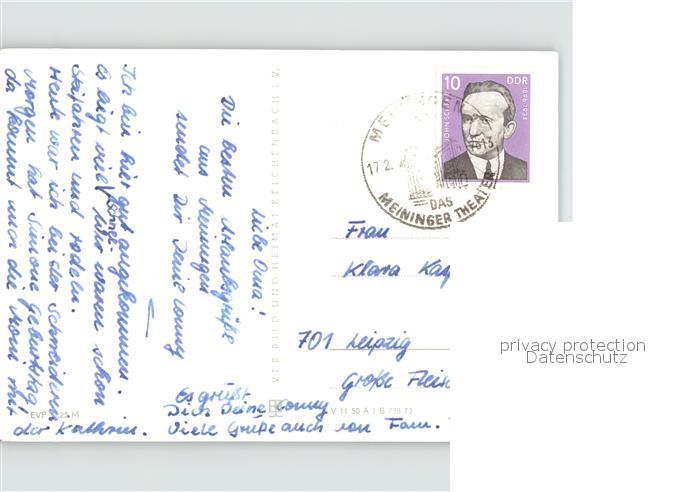 Liebe Oma!
Die besten Urlaubsgrüße
aus Meiningen
sendet Dir Deine Conny
Ich bin hier gut angekommen.
Es liegt viel Schnee. Wir waren schon
Skifahren und rodeln.
Heute war ich bei der Schneiderin
Morgen hat Simone Geburtstag
da kommt auch die Moni mit
der Kathrin.
Es grüßt
Dich Deine Conny
Viele Grüße auch von Fam.
Frau
Klara
701 Leipzig
Große
VEB BILD UND HEIMAT REICHENBACH I. V.
EVP
V 11 50 A 1 B 778 73
MEININGEN
17.2.
DAS
MEININGER THEATER
10
DDR
JOHN SCHEHR
1896-1934
privacy protection
Datenschutz